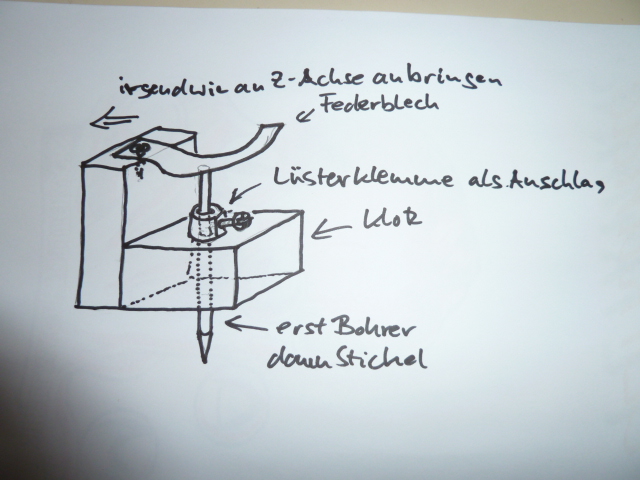 irgendwie an Z-Achse anbringen
Federblech
Lüsterklemme als Anschlag
Klotz
erst Bohrer
dann Stichel